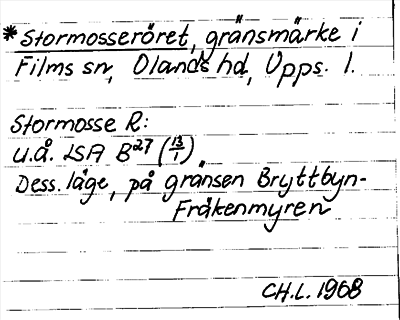 *Stormosseröret, gränsmärke i
Films sn, Olands hd, Upps. l.
Stormosse R:
u.å. LSA B27 (13/1)
Dess. läge, på gränsen Bryttbyn-
Fråkenmyren
CH.L. 1968